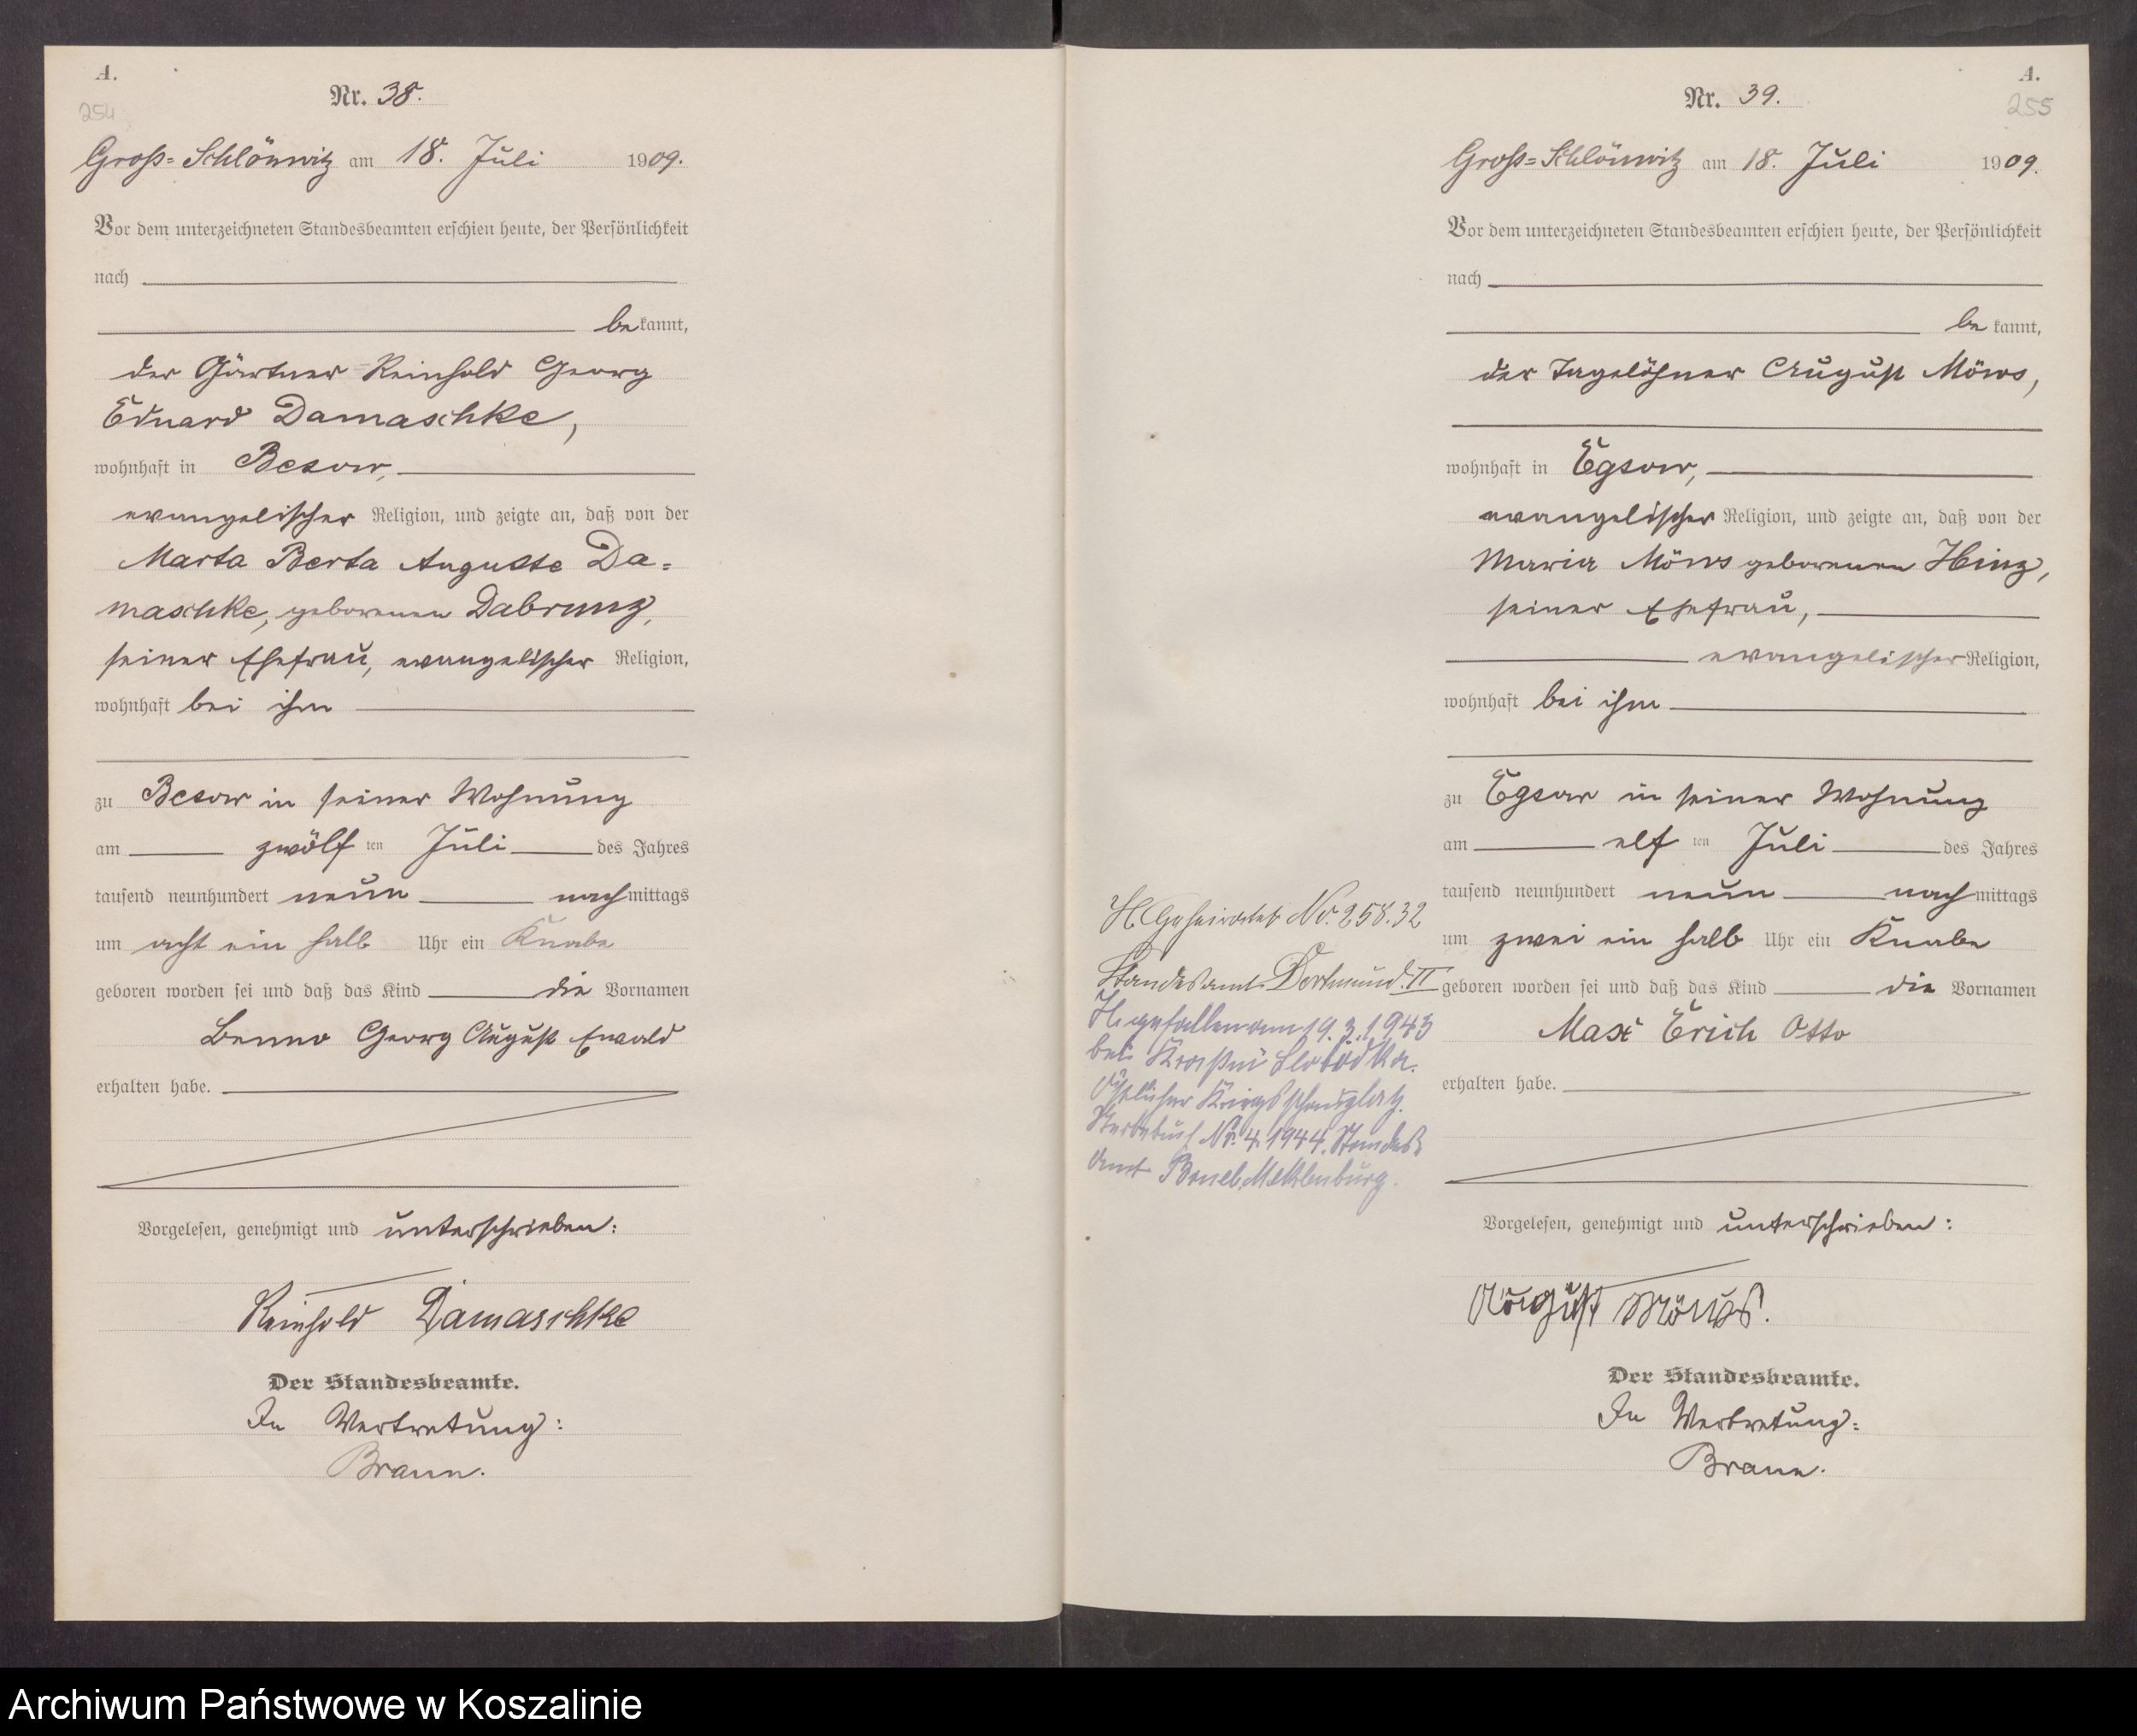 A.
254
Nr. 38.
Groß=Schlönwitz am 18. Juli 1909.
Vor dem unterzeichneten Standesbeamten erschien heute, der Persönlichkeit
nach
bekannt,
der Gärtner Reinhold Georg
Eduard Damaschke,
wohnhaft in Besow,
evangelischer Religion, und zeigte an, daß von der
Marta Berta Auguste Da=
maschke, geborenen Dabrunz,
seiner Ehefrau, evangelischer Religion,
wohnhaft bei ihm
zu Besow in seiner Wohnung
am zwölf ten Juli des Jahres
tausend neunhundert neun nachmittags
um acht ein halb Uhr ein Knabe
geboren worden sei und daß das Kind die Vornamen
Benno Georg August Ewald
erhalten habe.
Vorgelesen, genehmigt und unterschrieben:
Reinhold Damaschke
Der Standesbeamte.
In Vertretung:
Braun.
A.
255
Nr. 39.
Groß=Schlönwitz am 18. Juli 1909.
Vor dem unterzeichneten Standesbeamten erschien heute, der Persönlichkeit
nach
bekannt,
der Tagelöhner August Möws,
wohnhaft in Egsow,
evangelischer Religion, und zeigte an, daß von der
Maria Möws geborenen Hinz,
seiner Ehefrau,
evangelischer Religion,
wohnhaft bei ihm
zu Egsow in seiner Wohnung
am elf ten Juli des Jahres
tausend neunhundert neun nachmittags
um zwei ein halb Uhr ein Knabe
geboren worden sei und daß das Kind die Vornamen
Max Erich Otto
erhalten habe.
Vorgelesen, genehmigt und unterschrieben:
August Möws.
Der Standesbeamte.
In Vertretung:
Braun.
H. Geheiratet No. 258.32
Standesamt Dortmund. II
H. gefallen am 19.3.1943
bei Kraßni Slobodka.
Östlicher Kriegsschauplatz.
Sterbebuch No. 4.1944. Standes
amt Mecklenburg.
Archiwum Państwowe w Koszalinie